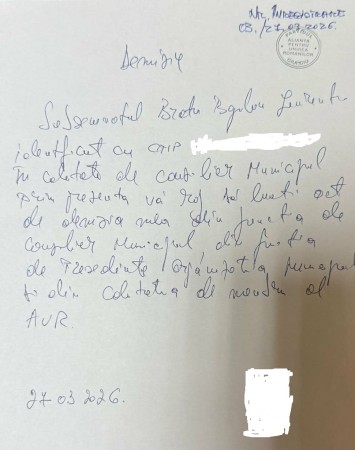 Nr. Înregistrare
03./27.03.2026.
PARTIDUL
ALIANȚA
PENTRU
UNIREA
ROMÂNILOR
Demisie
Subsemnatul Bratu
identificat cu CNP
în calitate de consilier Municipal
prin prezenta vă rog să luați act
de demisia mea din funcția de
consilier Municipal din funcția
de Președinte Organizația
și din calitatea de membru al
AUR.
27 03 2026.